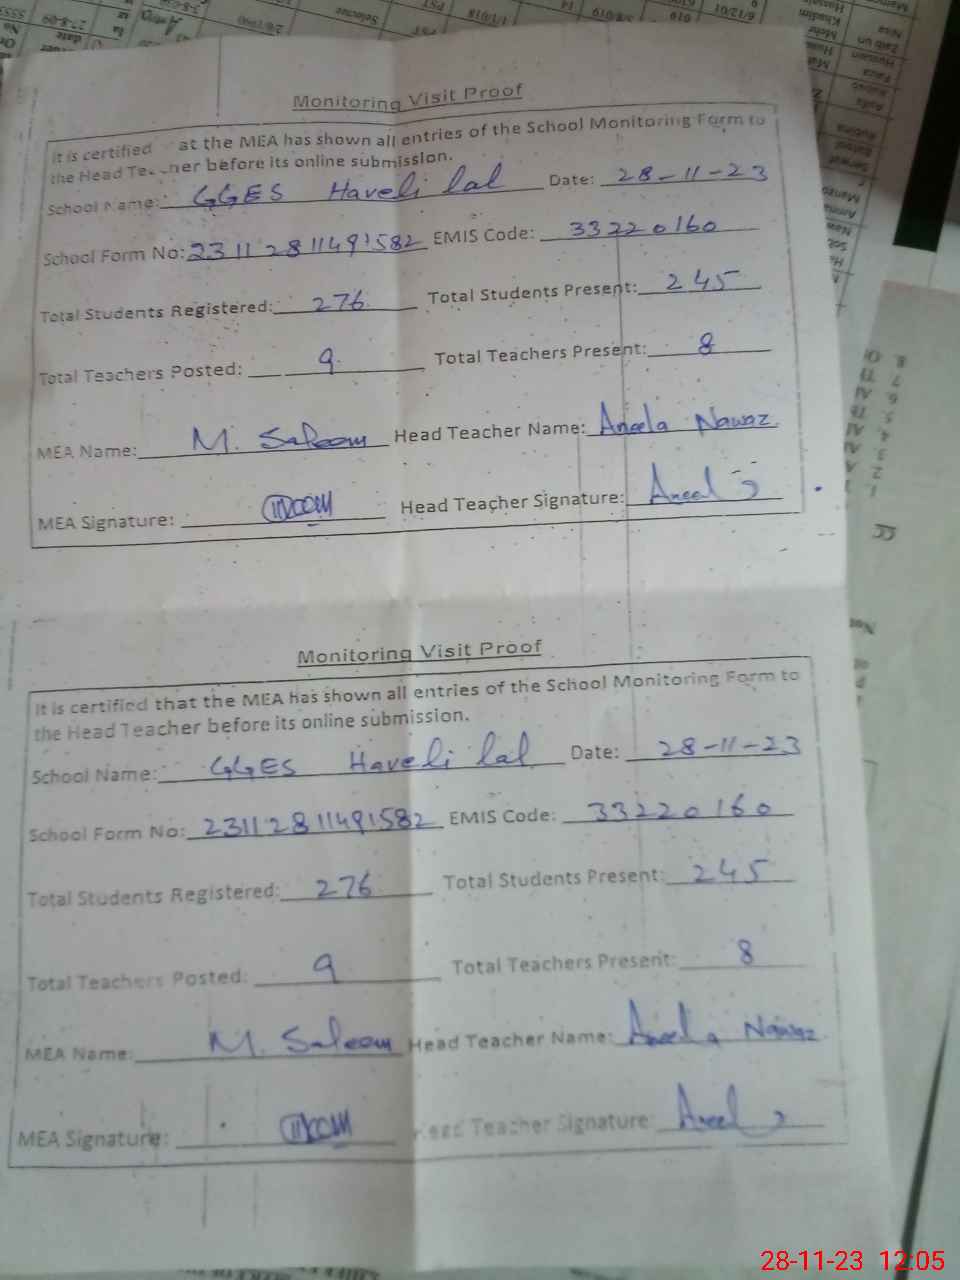 Monitoring Visit Proof
It is certified at the MEA has shown all entries of the School Monitoring Form to
the Head Teacher before its online submission.
School Name: GGES Haveli lal Date: 28-11-23
School Form No: 23112811491582 EMIS Code: 33220160
Total Students Registered: 276 Total Students Present: 245
Total Teachers Posted: 9 Total Teachers Present: 8
MEA Name: M. Saleem Head Teacher Name: Aneela Nawaz
MEA Signature: Head Teacher Signature: Aneela
Monitoring Visit Proof
It is certified that the MEA has shown all entries of the School Monitoring Form to
the Head Teacher before its online submission.
School Name: GGES Haveli lal Date: 28-11-23
School Form No: 23112811491582 EMIS Code: 33220160
Total Students Registered: 276 Total Students Present: 245
Total Teachers Posted: 9 Total Teachers Present: 8
MEA Name: M. Saleem Head Teacher Name: Aneela Nawaz
MEA Signature: Head Teacher Signature: Aneela
28-11-23 12:05